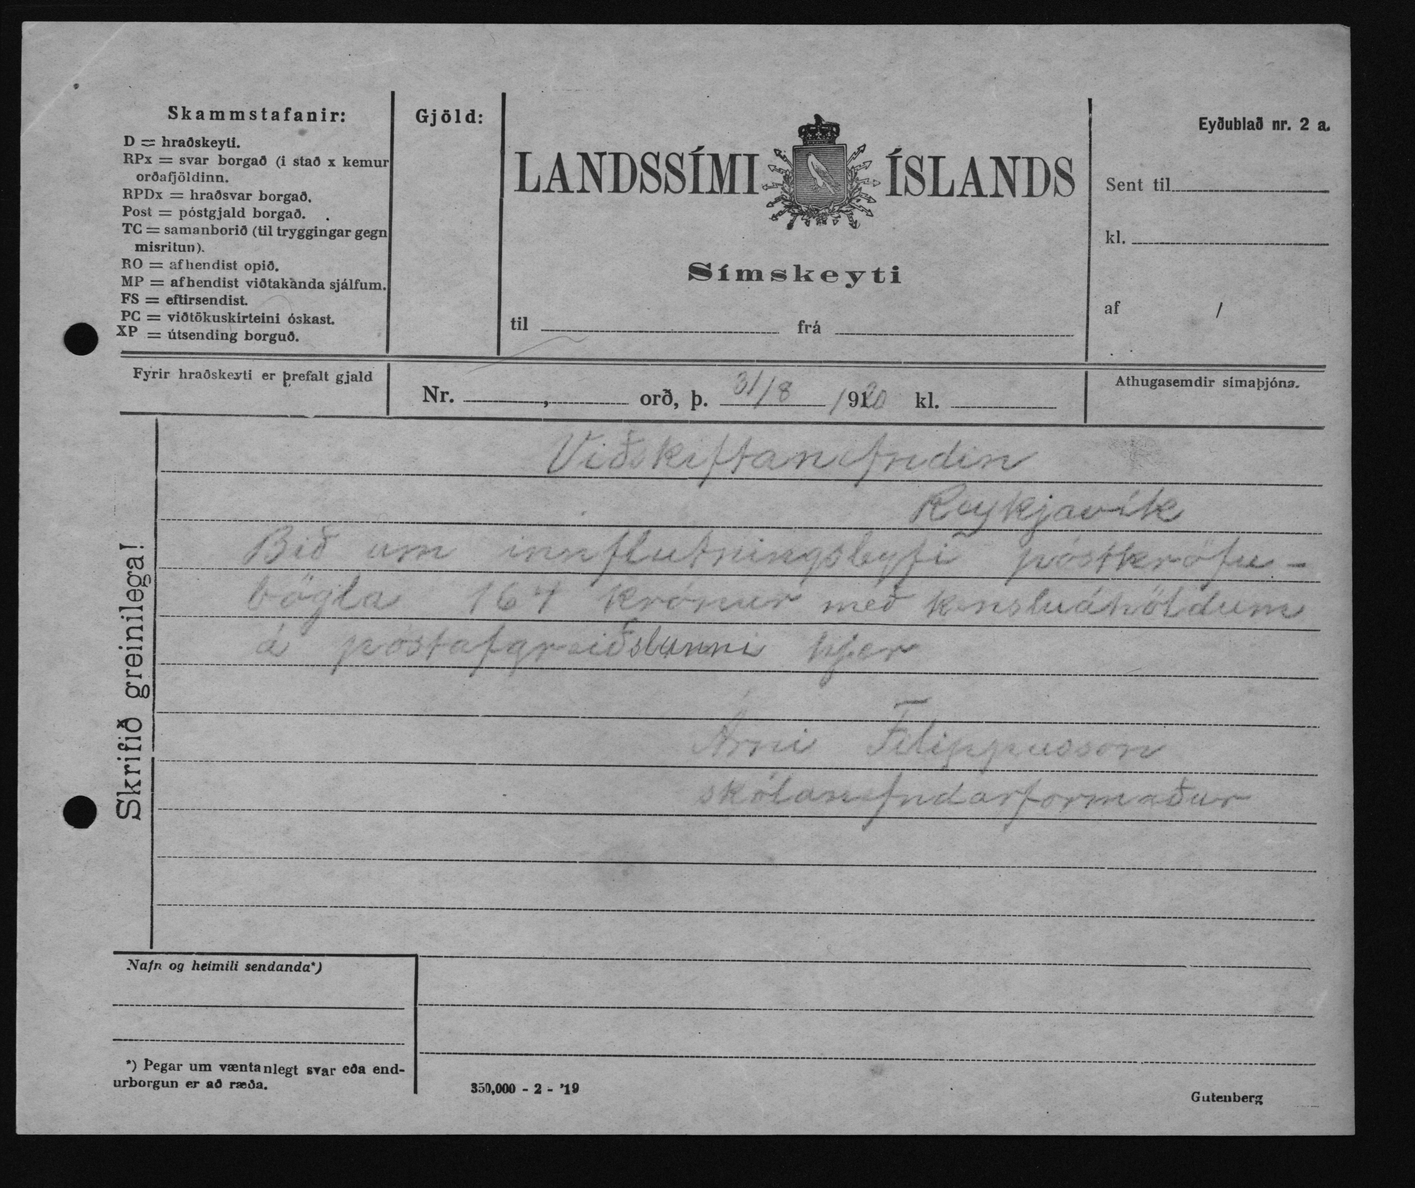 Skammstafanir:
D = hraðskeyti.
RPx = svar borgað (i stað x kemur
orðafjöldinn.
RPDx = hraðsvar borgað.
Post = póstgjald borgað.
TC = samanborið (til tryggingar gegn
misritun).
RO = afhendist opið.
MP = afhendist viðtakanda sjálfum.
FS = eftirsendist.
PC = viðtökuskirteini óskast.
XP = útsending borguð.
Gjöld:
LANDSSÍMI ÍSLANDS
Símskeyti
til frá
Eyðublað nr. 2 a.
Sent til
kl.
af /
Fyrir hraðskeyti er þrefalt gjald
Nr. , orð, þ. 31/8 1920 kl.
Athugasemdir simaþjóna.
Skrifið greinilega!
Viðskiftanefndin
Reykjavík
Bið um innflutningsleyfi póstkröfu-
bögla 167 krónur með kensluáhöldum
á póstafgreiðslunni hjer
Árni Filippusson
skólanefndarformaður
Nafn og heimili sendanda*)
*) Þegar um væntanlegt svar eða end-
urborgun er að ræða.
350,000 - 2 - '19
Gutenberg